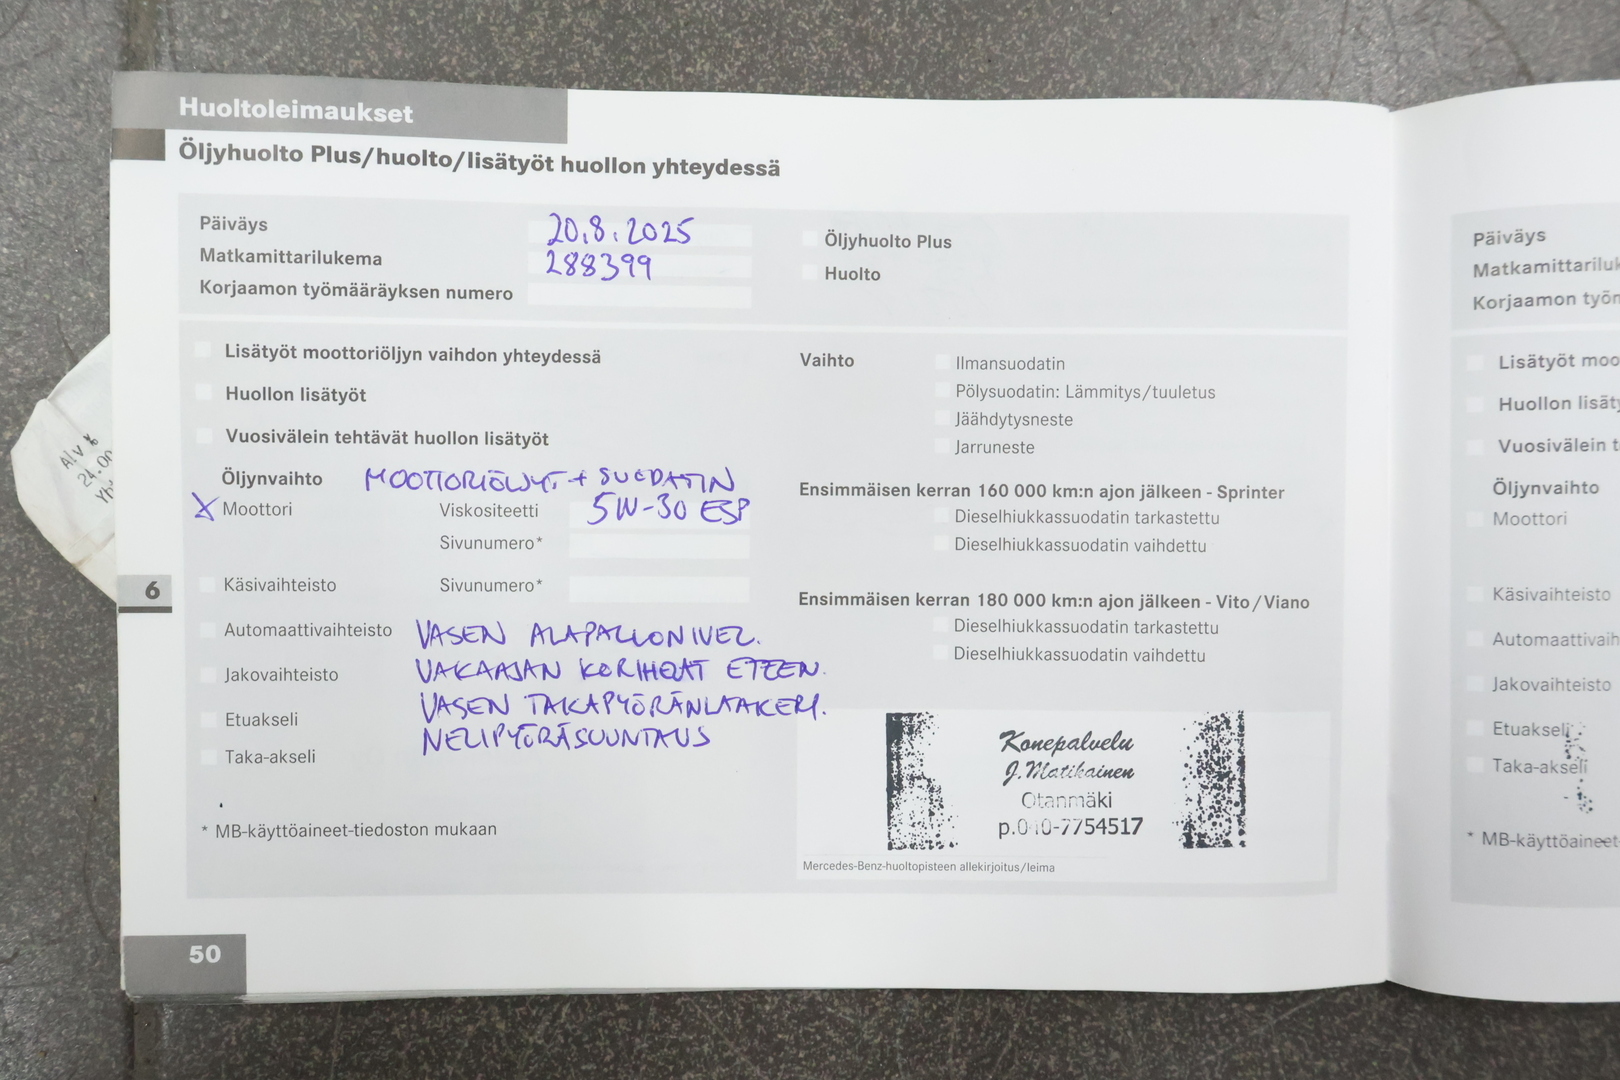 Huoltoleimaukset
Öljyhuolto Plus/huolto/lisätyöt huollon yhteydessä
Päiväys 20.8.2025
Matkamittarilukema 288399
Korjaamon työmääräyksen numero
Öljyhuolto Plus
Huolto
Lisätyöt moottoriöljyn vaihdon yhteydessä
Huollon lisätyöt
Vuosivälein tehtävät huollon lisätyöt
Öljynvaihto MOOTTORIÖLJYT + SUODATIN
X Moottori Viskositeetti 5W-30 ESP
Sivunumero*
Käsivaihteisto Sivunumero*
Automaattivaihteisto VASEN ALAPALLONIVEL.
Jakovaihteisto VAKAAJAN KORIHELAT ETEEN.
Etuakseli VASEN TAKAPYÖRÄNLAAKERI.
Taka-akseli NELIPYÖRÄSUUNTAUS
* MB-käyttöaineet-tiedoston mukaan
Vaihto Ilmansuodatin
Pölysuodatin: Lämmitys/tuuletus
Jäähdytysneste
Jarruneste
Ensimmäisen kerran 160 000 km:n ajon jälkeen - Sprinter
Dieselhiukkassuodatin tarkastettu
Dieselhiukkassuodatin vaihdettu
Ensimmäisen kerran 180 000 km:n ajon jälkeen - Vito/Viano
Dieselhiukkassuodatin tarkastettu
Dieselhiukkassuodatin vaihdettu
Konepalvelu
J.Matikainen
Otanmäki
p.040-7754517
Mercedes-Benz-huoltopisteen allekirjoitus/leima
6
50
Alv %
24.00
Päiväys
Matkamittariluk
Korjaamon työm
Lisätyöt moo
Huollon lisäty
Vuosivälein t
Öljynvaihto
Moottori
Käsivaihteisto
Automaattivaih
Jakovaihteisto
Etuakseli
Taka-akseli
* MB-käyttöaineet-